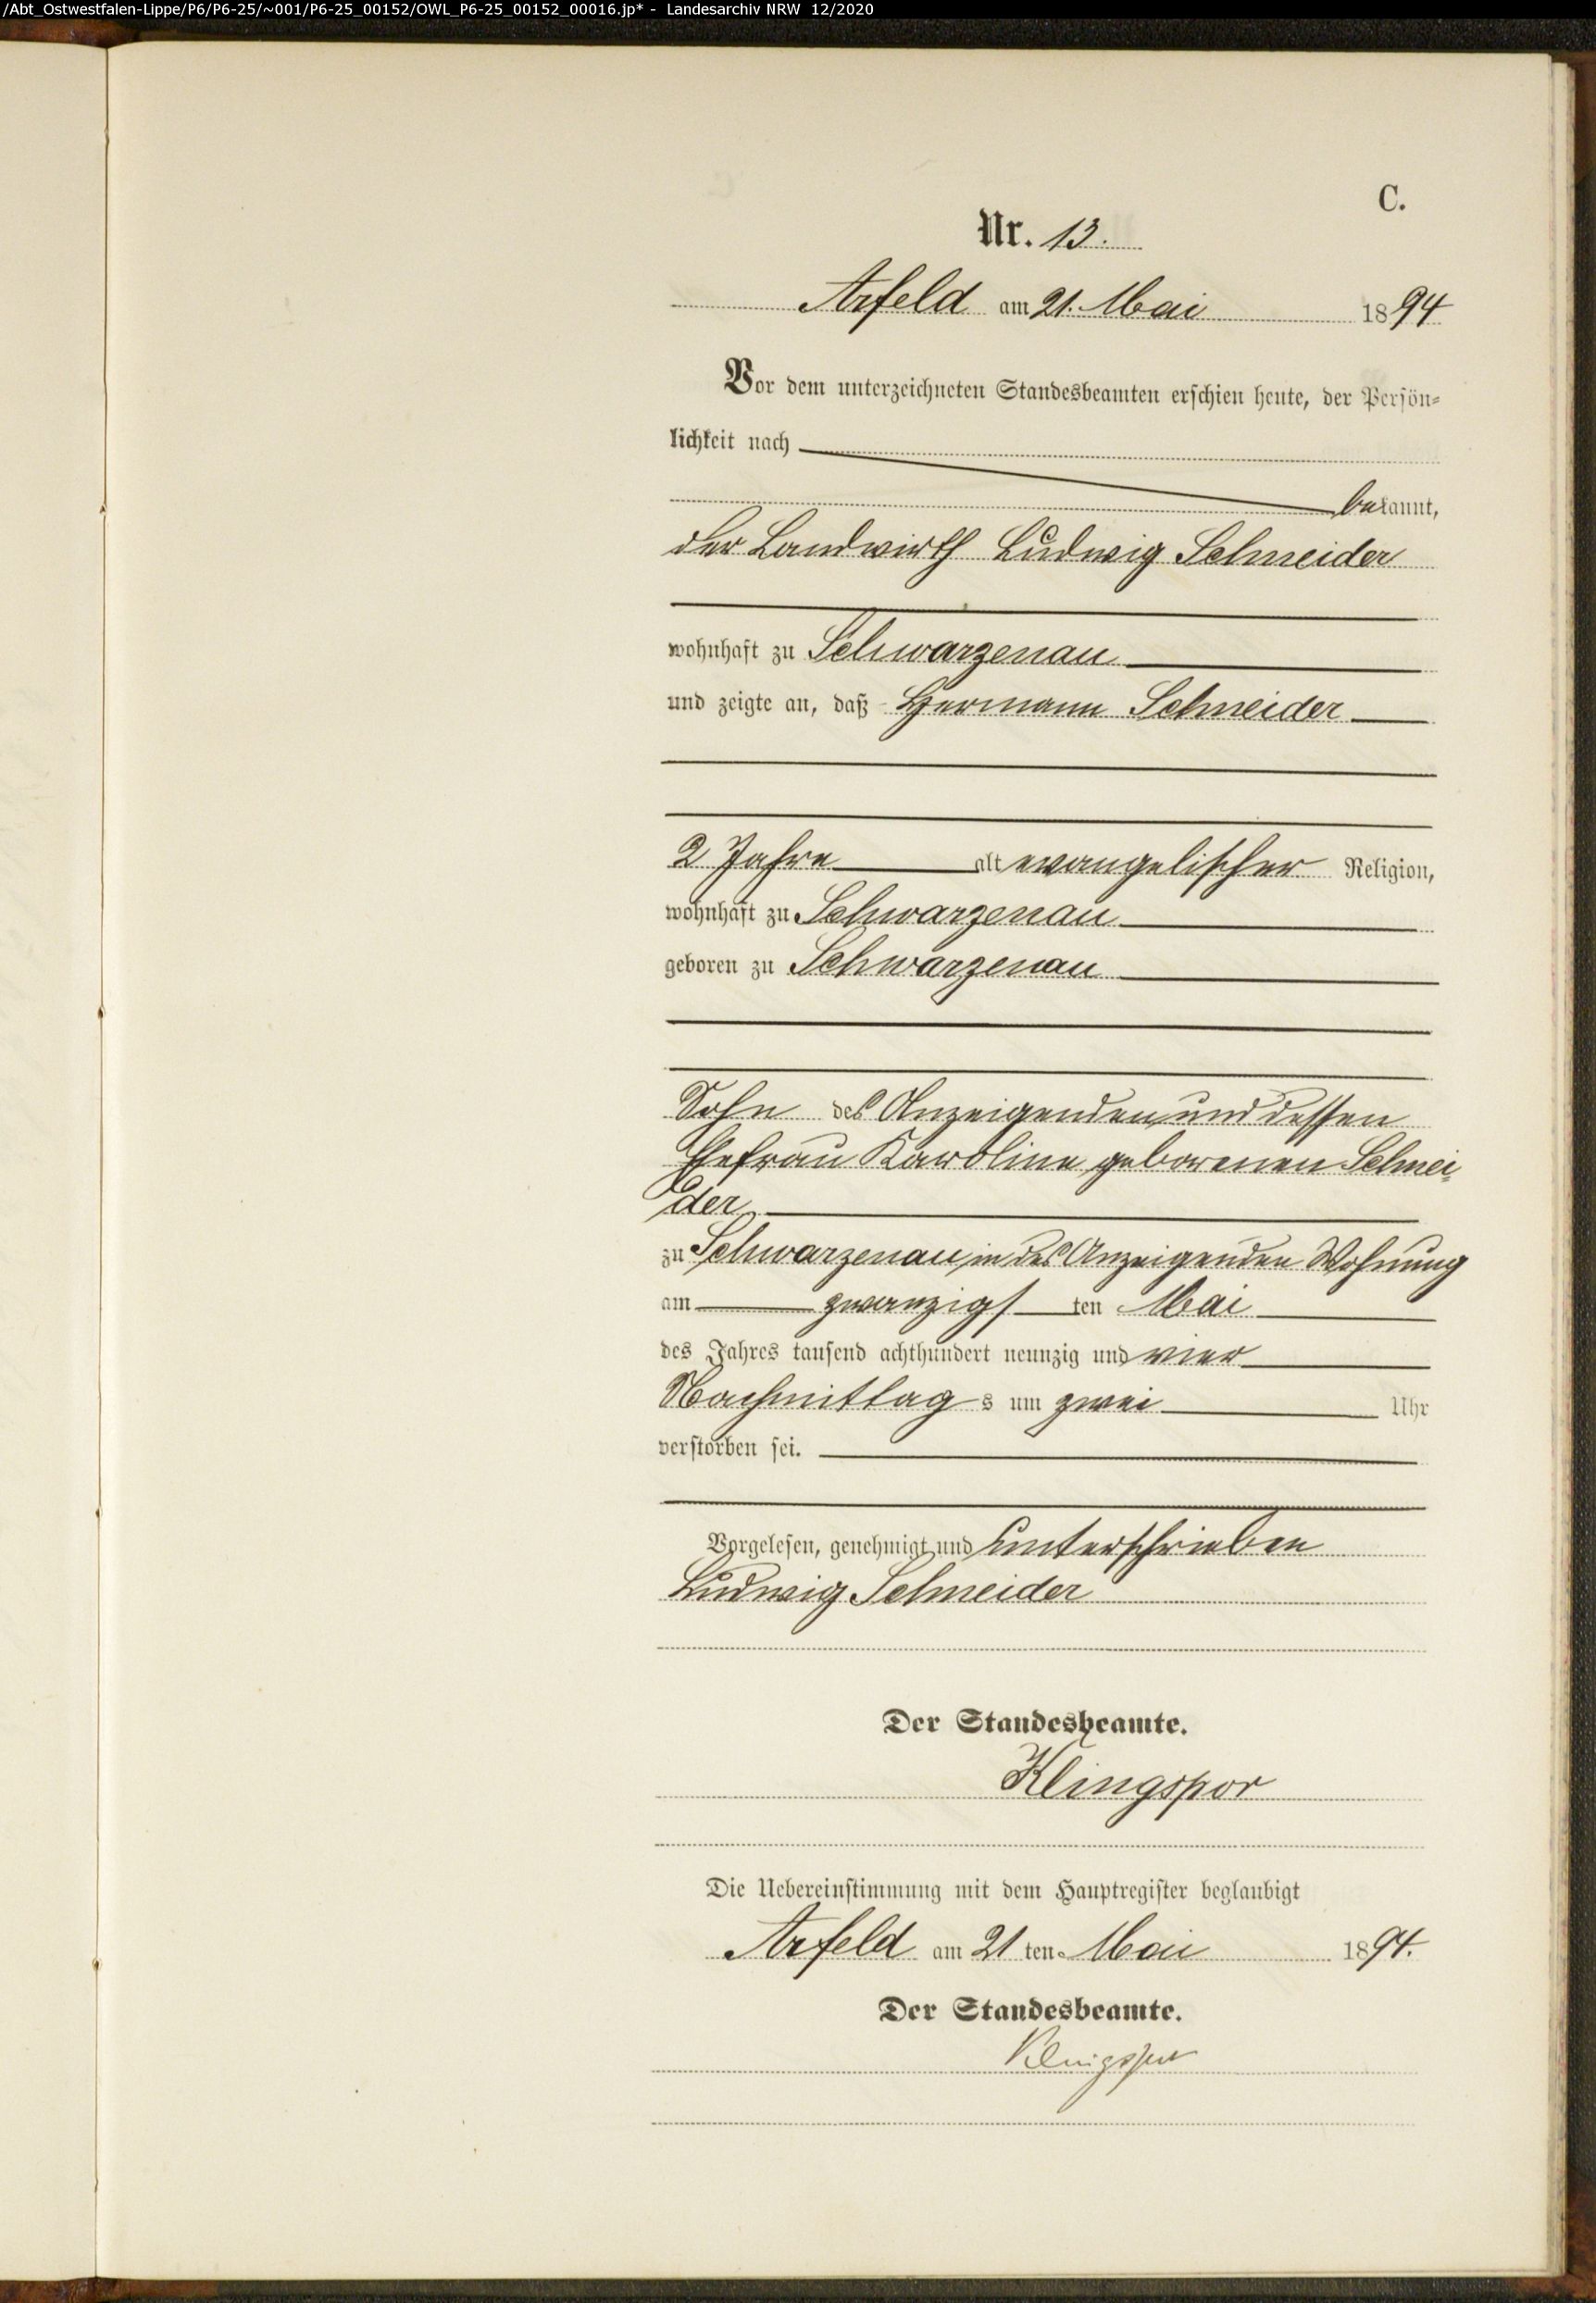 /Abt_Ostwestfalen-Lippe/P6/P6-25/~001/P6-25_00152/OWL_P6-25_00152_00016.jp* - Landesarchiv NRW 12/2020
C.
Nr. 13.
Arfeld am 21. Mai 1894
Vor dem unterzeichneten Standesbeamten erschien heute, der Persön-
lichkeit nach
bekannt,
der Landwirth Ludwig Schneider
wohnhaft zu Schwarzenau
und zeigte an, daß Hermann Schneider
2 Jahre alt evangelischer Religion,
wohnhaft zu Schwarzenau
geboren zu Schwarzenau
Sohn des Anzeigenden und dessen
Ehefrau Karoline geborenen Schnei-
der
zu Schwarzenau in des Anzeigenden Wohnung
am zwanzigsten Mai
des Jahres tausend achthundert neunzig und vier
Nachmittags um zwei Uhr
verstorben sei.
Vorgelesen, genehmigt und unterschrieben
Ludwig Schneider
Der Standesbeamte.
Klingspor
Die Uebereinstimmung mit dem Hauptregister beglaubigt
Arfeld am 21ten Mai 1894.
Der Standesbeamte.
Klingspor